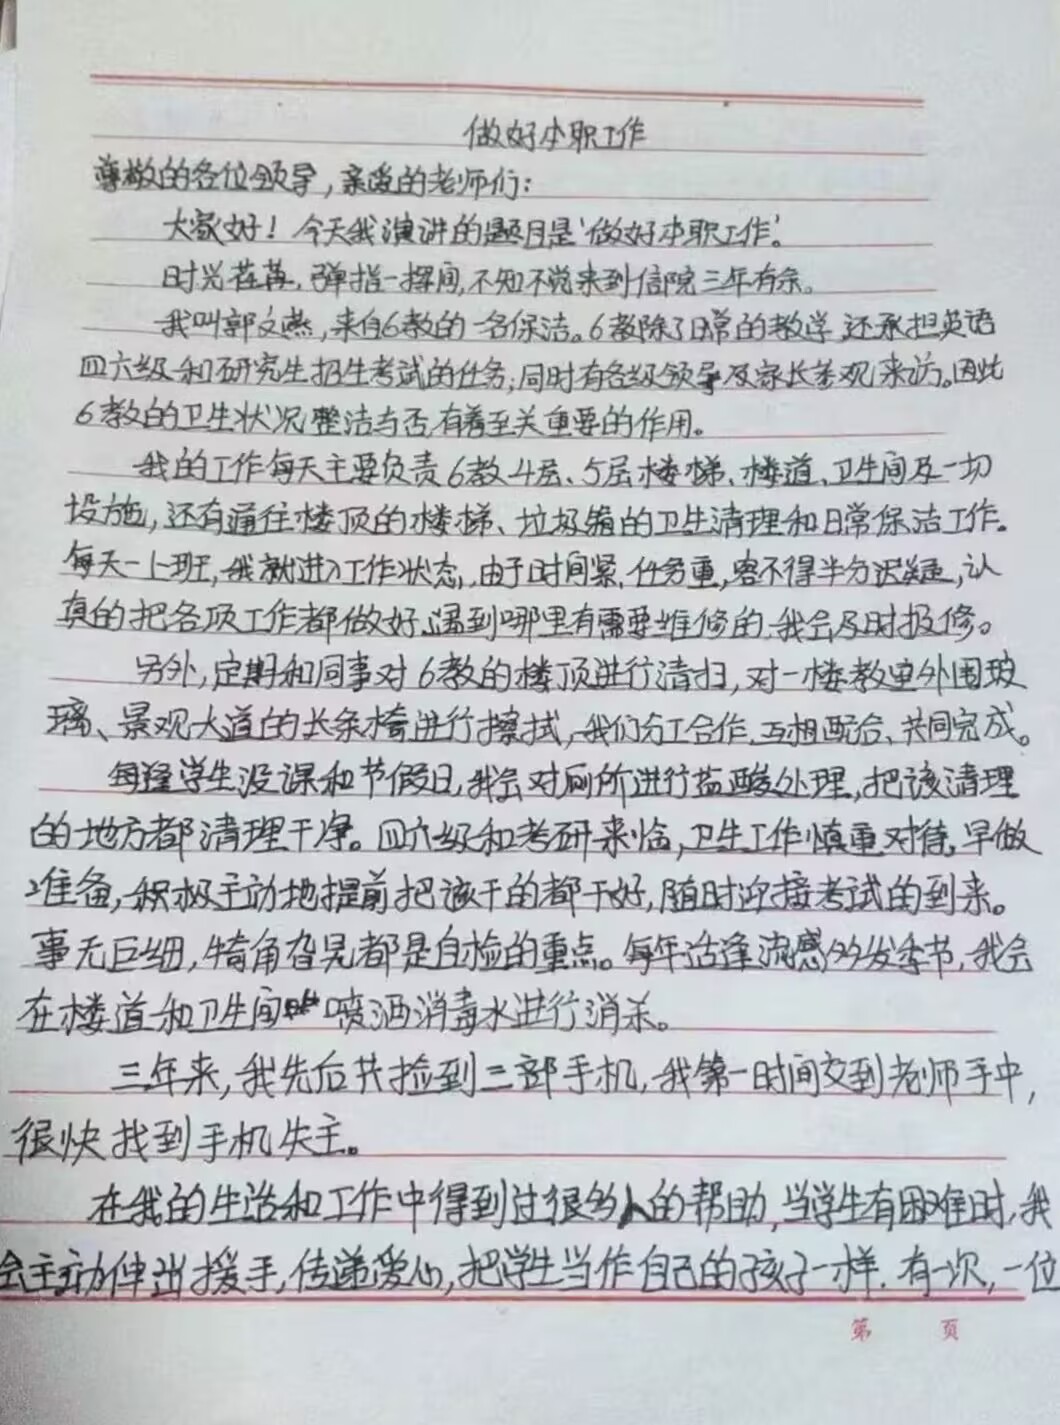 做好本职工作
尊敬的各位领导，亲爱的老师们：
大家好！今天我演讲的题目是‘做好本职工作’。
时光荏苒，弹指一挥间，不知不觉来到信院三年有余。
我叫郭文燕，来自6教的一名保洁。6教除了日常的教学，还承担英语
四六级和研究生招生考试的任务；同时有各级领导及家长参观来访。因此
6教的卫生状况整洁与否，有着至关重要的作用。
我的工作每天主要负责6教4层、5层楼梯、楼道、卫生间及一切
设施，还有通往楼顶的楼梯、垃圾箱的卫生清理和日常保洁工作。
每天一上班，我就进入工作状态，由于时间紧，任务重，容不得半分迟疑，认
真的把各项工作都做好，遇到哪里有需要维修的，我会及时报修。
另外，定期和同事对6教的楼顶进行清扫，对一楼教室外围玻
璃、景观大道的长条椅进行擦拭，我们分工合作，互相配合、共同完成。
每逢学生没课和节假日，我会对厕所进行盐酸处理，把该清理
的地方都清理干净。四六级和考研来临，卫生工作慎重对待，早做
准备，积极主动地提前把该干的都干好，随时迎接考试的到来。
事无巨细，犄角旮旯都是自检的重点。每年适逢流感多发季节，我会
在楼道和卫生间喷洒消毒水进行消杀。
三年来，我先后共捡到三部手机，我第一时间交到老师手中，
很快找到手机失主。
在我的生活和工作中得到过很多人的帮助，当学生有困难时，我
会主动伸出援手，传递爱心，把学生当作自己的孩子一样。有一次，一位
第 页